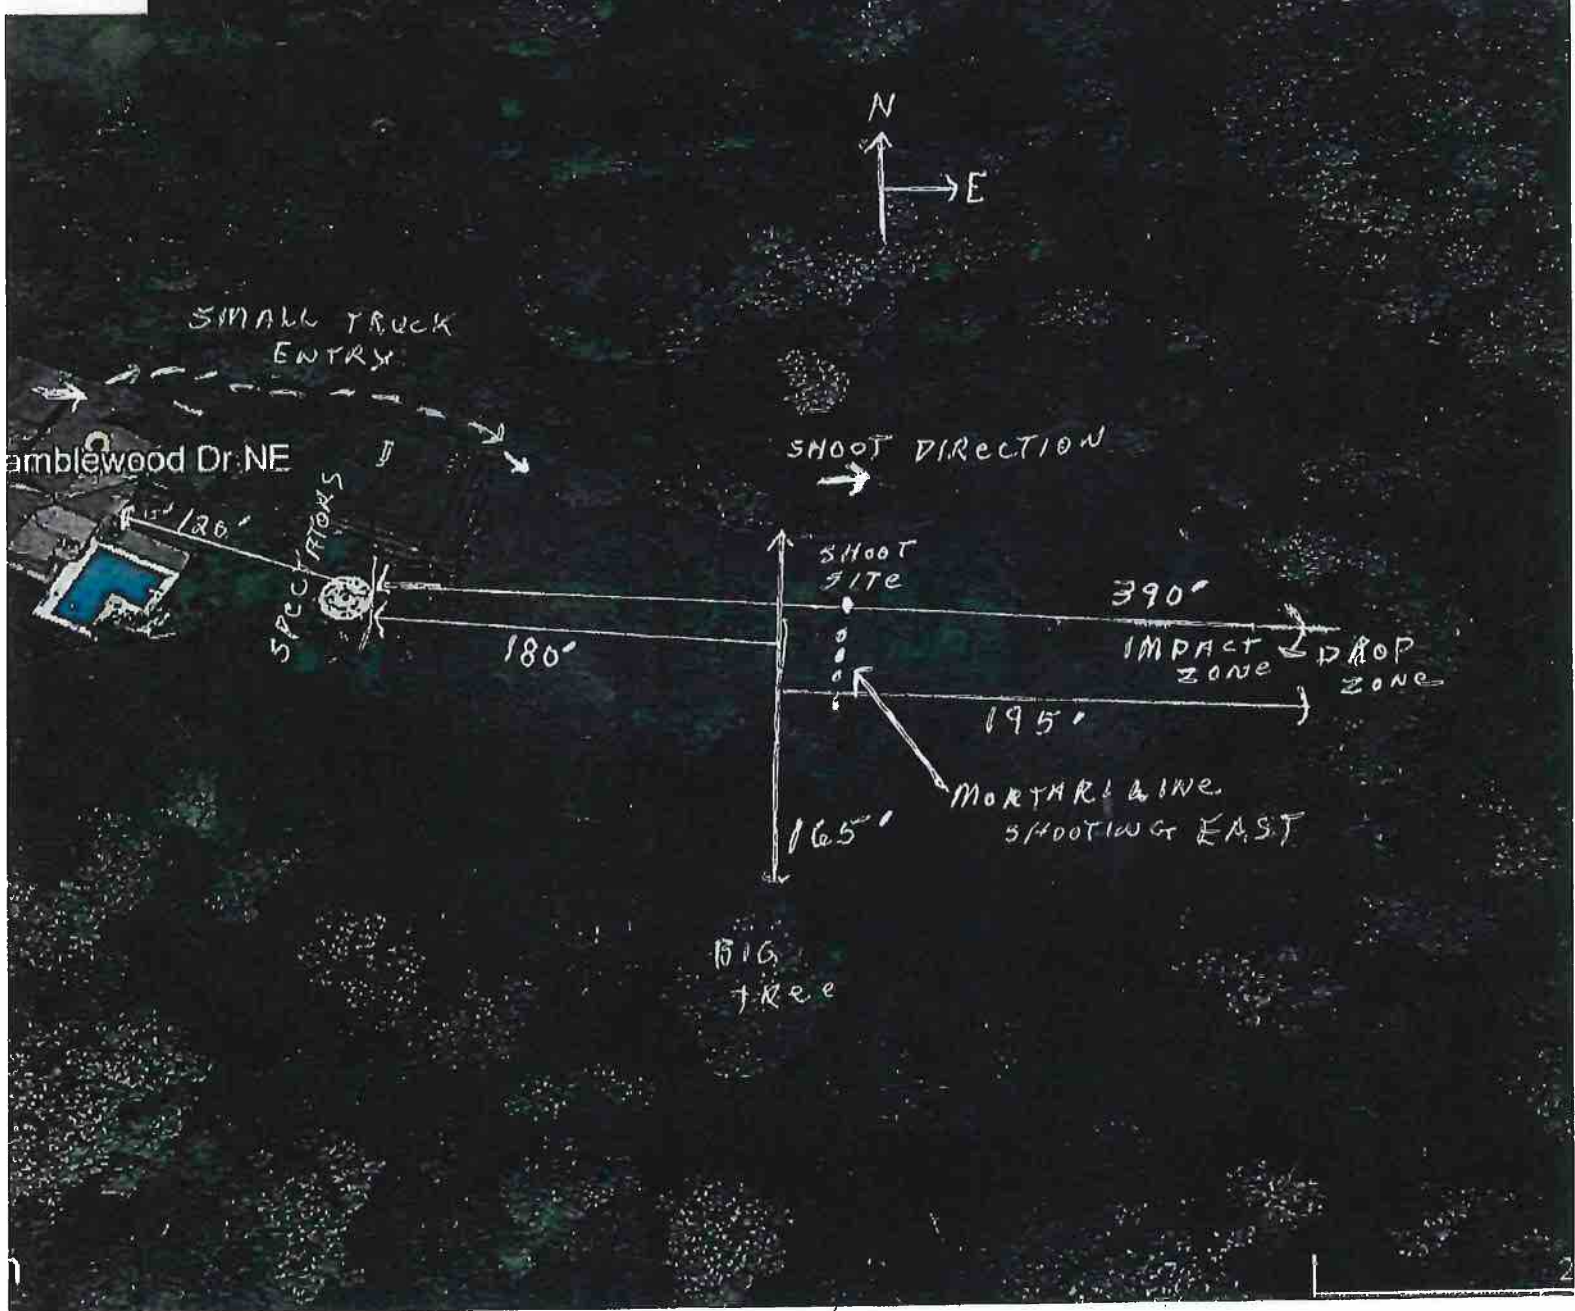 N
E
SMALL TRUCK
ENTRY
amblewood Dr NE
SHOOT DIRECTION
SPECTATORS
120'
SHOOT
SITE
390'
IMPACT
ZONE
DROP
ZONE
180'
195'
MORTAR LINE
SHOOTING EAST
165'
BIG
TREE
2